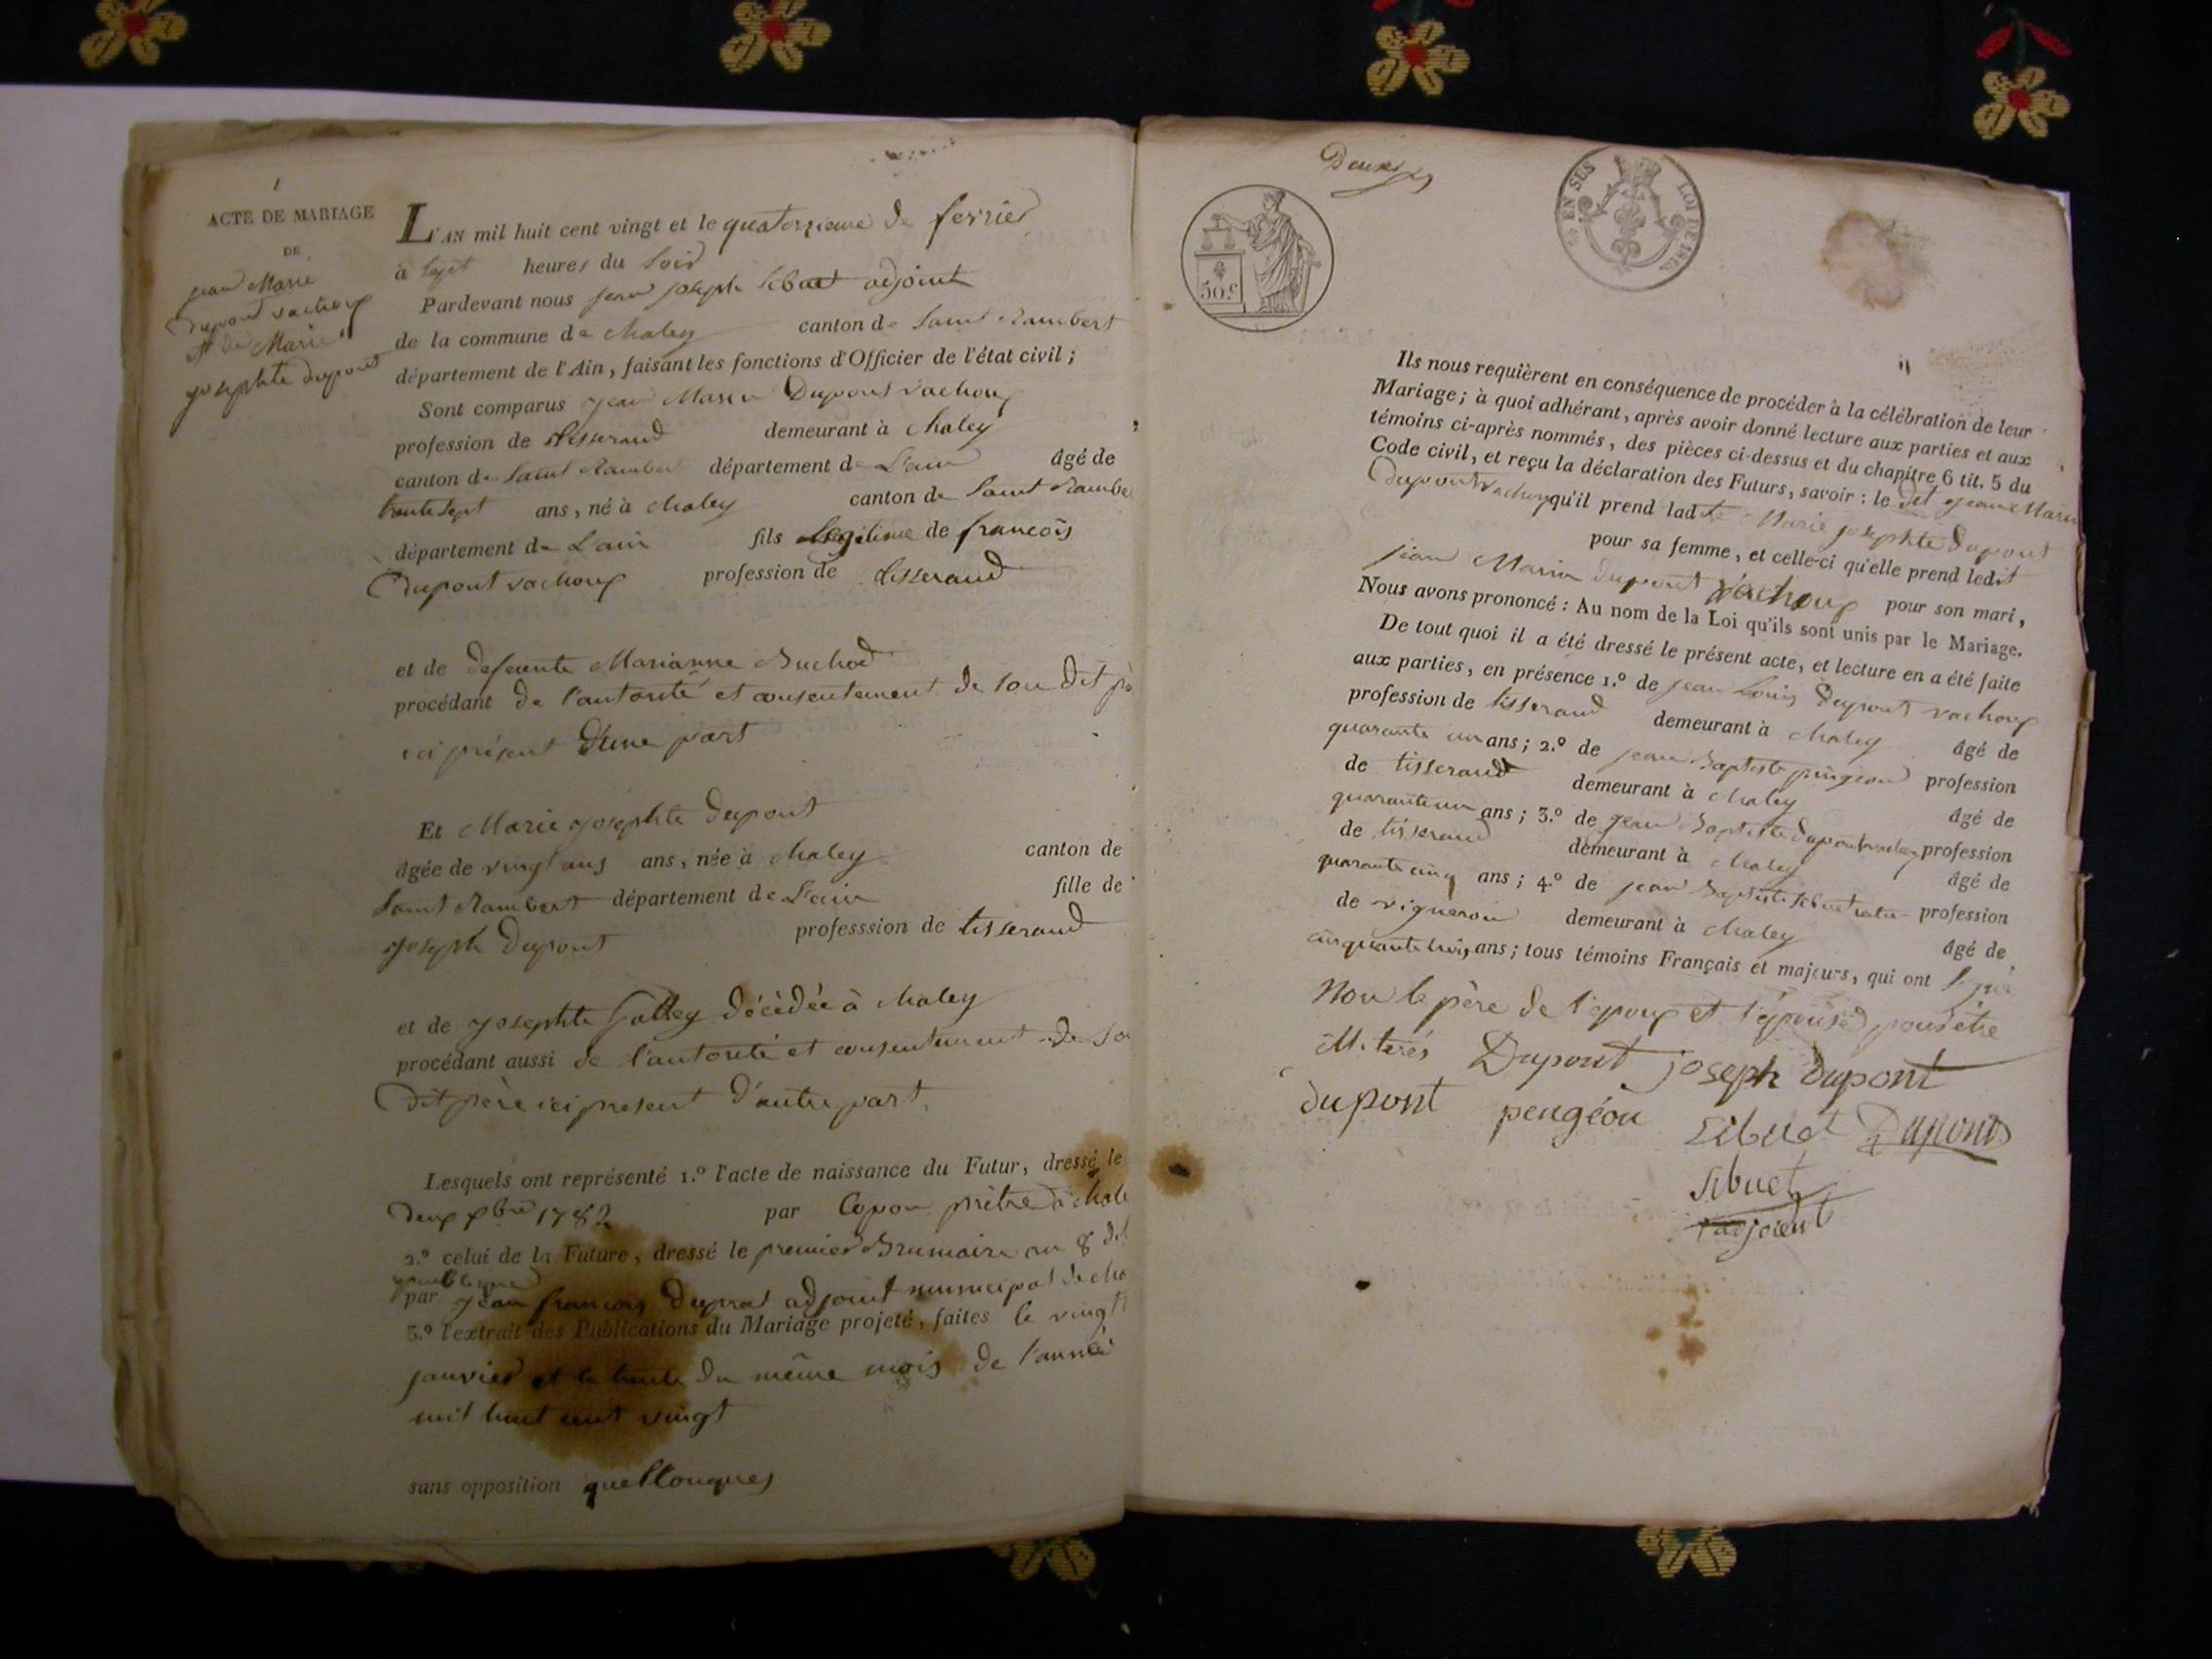 1
ACTE DE MARIAGE
DE
jean Marie
Dupont vachoux
et de Marie
josephte dupont
L'AN mil huit cent vingt et le quatorzieme de fevrier
à sept heures du soir
Pardevant nous jean joseph Sibuet adjoint
de la commune de chaley canton de Saint Rambert
département de l'Ain, faisant les fonctions d'Officier de l'état civil ;
Sont comparus jean Marie Dupont vachoux
profession de tisserand demeurant à chaley
canton de Saint Rambert département de L'ain âgé de
trente sept ans, né à chaley canton de Saint Rambe
département de L'ain fils legitime de francois
Dupont vachoux profession de tisserand
et de defeunte Marianne Buchod
procédant de l'autorité et consentement de son dit pè
ici présent d'une part
Et Marie josephte dupont
âgée de vingt ans ans, née à chaley canton de
Saint Rambert département de L'ain fille de
joseph Dupont professsion de tisserand
et de josephte décèdée à chaley
procédant aussi de l'autorité et consentement de so
Dit père ici present d'autre part
Lesquels ont représenté 1.º l'acte de naissance du Futur, dressé le
Deux xbre 1782 par prêtre à chale
2.º celui de la Future, dressé le premier Brumaire an 8 de
par jean francois adjoint municipal de cha
3.º l'extrait des Publications du Mariage projeté, faites le vingt
janvier et le trente du même mois de l'année
mil huit cent vingt
sans opposition quellonques
Deux
50.c
EN SUS LOI DE 1816
Ils nous requièrent en conséquence de procéder à la célébration de leur
Mariage ; à quoi adhérant, après avoir donné lecture aux parties et aux
témoins ci-après nommés, des pièces ci-dessus et du chapitre 6 tit. 5 du
Code civil, et reçu la déclaration des Futurs, savoir : le dit jean Marie
Dupont vachoux qu'il prend ladte Marie josephte Dupont
pour sa femme, et celle-ci qu'elle prend ledit
jean Marie dupont vachoux pour son mari,
Nous avons prononcé : Au nom de la Loi qu'ils sont unis par le Mariage.
De tout quoi il a été dressé le présent acte, et lecture en a été faite
aux parties, en présence 1.º de jean Louis Dupont vachoux
profession de tisserand demeurant à chaley âgé de
quarante un ans ; 2.º de jean Baptiste pingeon profession
de tisserand demeurant à chaley âgé de
quarante un ans ; 3.º de jean Baptiste dupont vachoux profession
de tisserand demeurant à chaley âgé de
quarante cinq ans ; 4.º de jean Baptiste Sibuet profession
de vigneron demeurant à chaley âgé de
cinquante trois ans ; tous témoins Français et majeurs, qui ont signé
Non le père de l'epoux et l'épouse pour être
illiterés Dupont joseph dupont
dupont pengéon Sibuet Dupont
Sibuet
adjoient